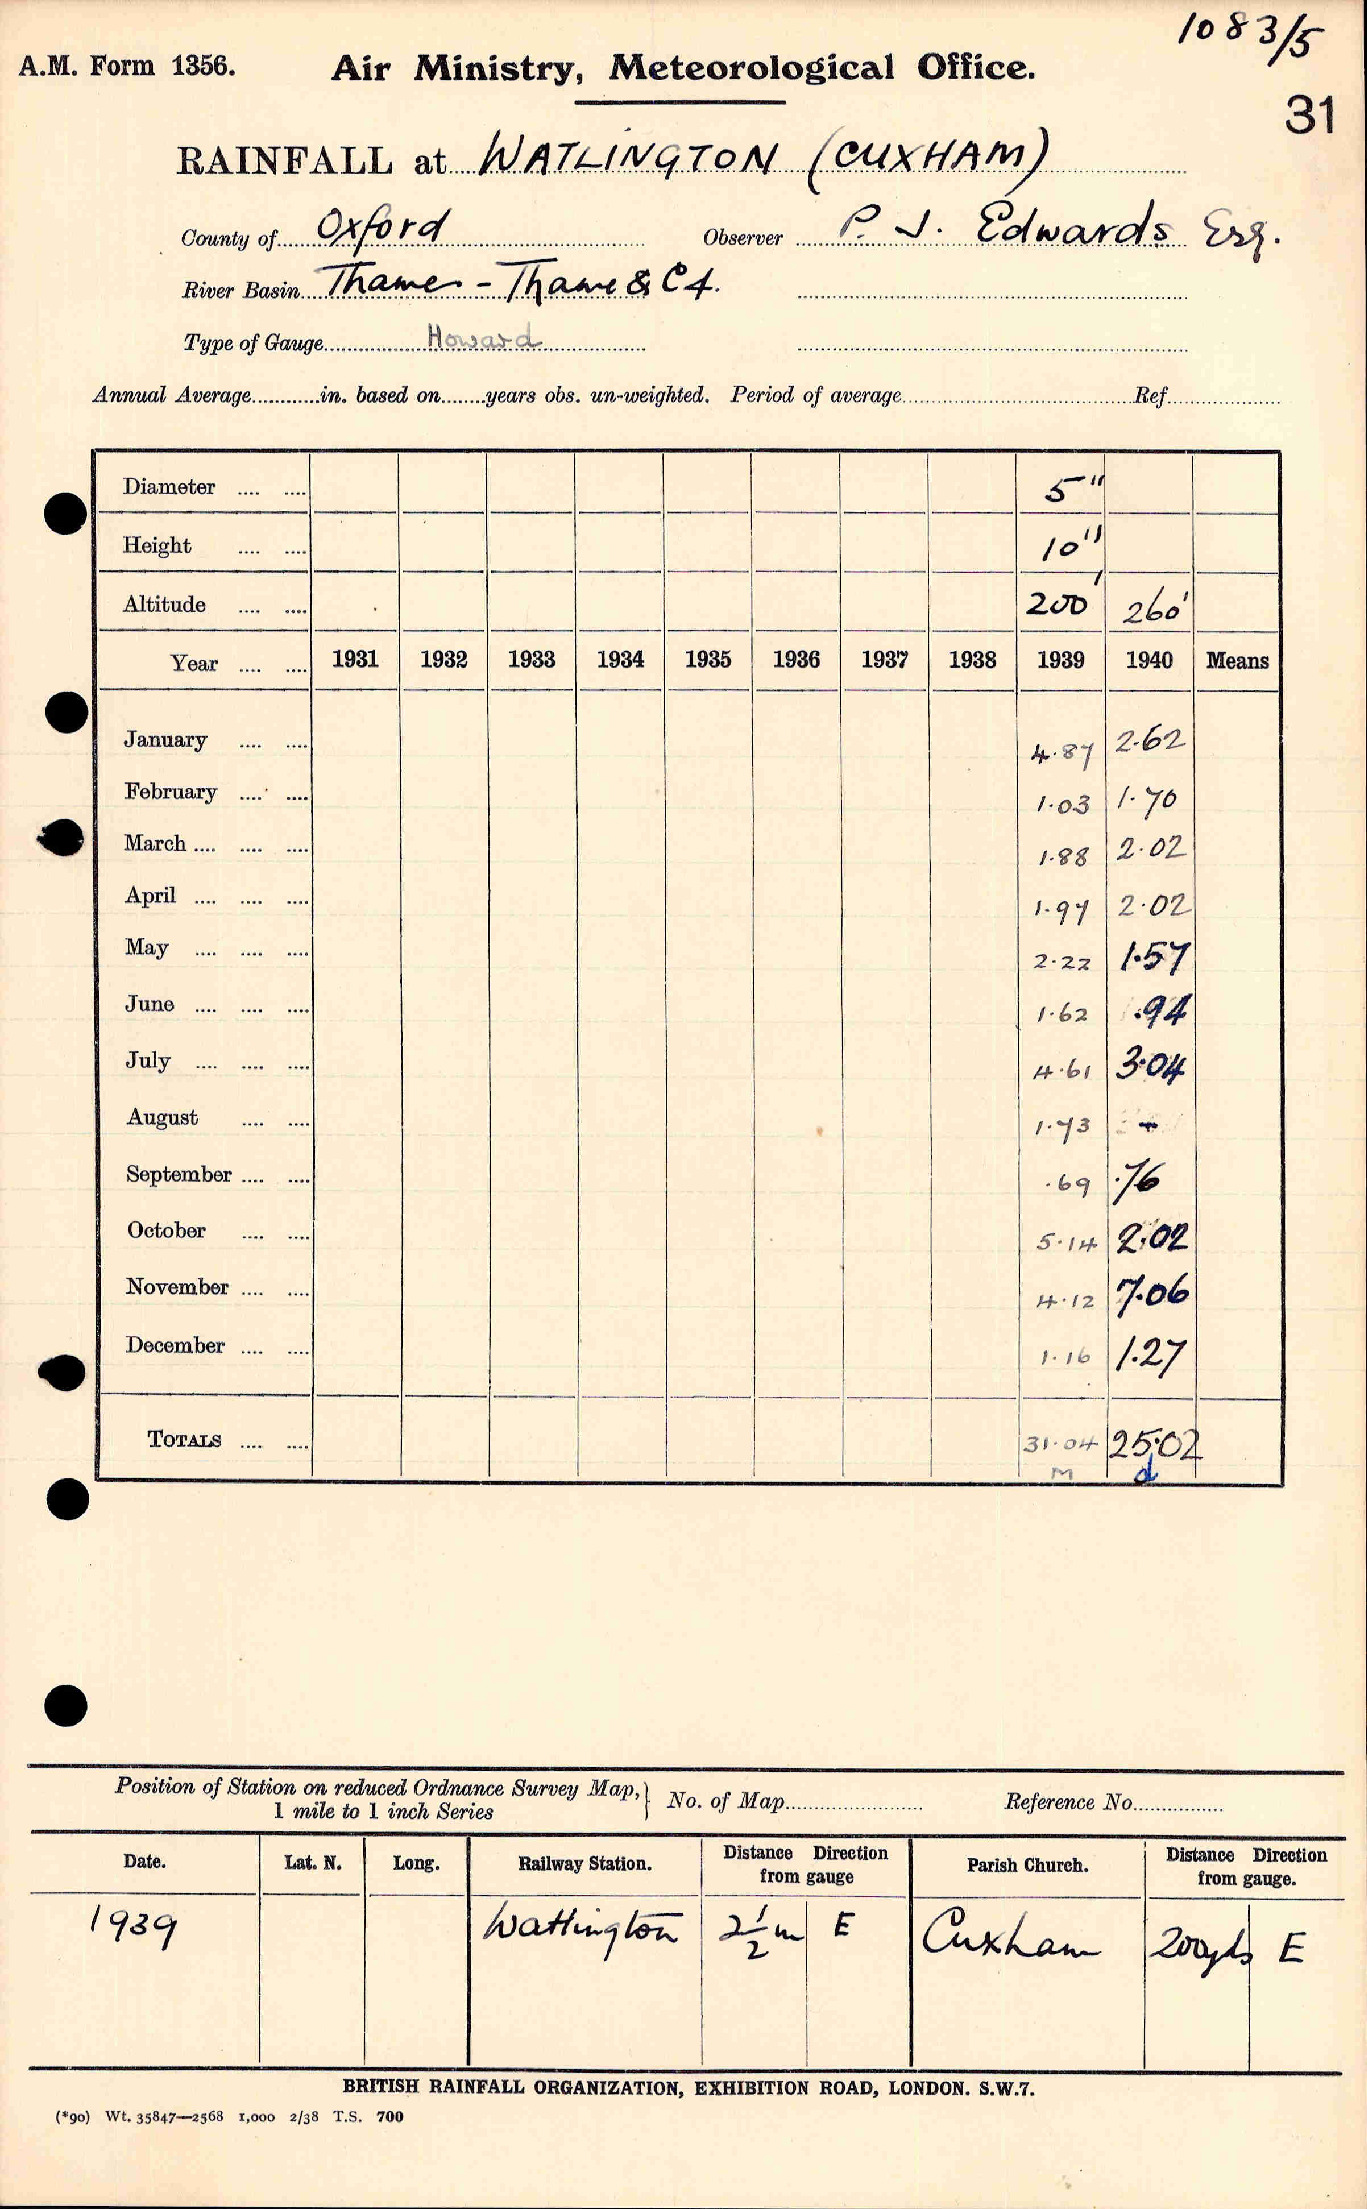 1083/5
A.M. Form 1356. Air Ministry, Meteorological Office.
31
RAINFALL at WATLINGTON (CUXHAM)
County of Oxford Observer P. J. Edwards Esq.
River Basin Thames - Thame & C4.
Type of Gauge Howard
Annual Average............in. based on........years obs. un-weighted. Period of average.................... Ref....................
Diameter .... .... 5"
Height .... .... 10"
Altitude .... .... 200' 260'
Year .... .... 1931 1932 1933 1934 1935 1936 1937 1938 1939 1940 Means
January .... .... 4.87 2.62
February .... .... 1.03 1.70
March .... .... .... 1.88 2.02
April .... .... .... 1.97 2.02
May .... .... .... 2.22 1.57
June .... .... .... 1.62 .94
July .... .... .... 4.61 3.04
August .... .... 1.73
September .... .... .69 .76
October .... .... 5.14 2.02
November .... .... 4.12 7.06
December .... .... 1.16 1.27
TOTALS .... .... 31.04 25.02
M d
Position of Station on reduced Ordnance Survey Map, 1 mile to 1 inch Series } No. of Map........................ Reference No................
Date. Lat. N. Long. Railway Station. Distance Direction from gauge Parish Church. Distance Direction from gauge.
1939 Watlington 2 1/2 m E Cuxham 200yds E
BRITISH RAINFALL ORGANIZATION, EXHIBITION ROAD, LONDON. S.W.7.
(*90) Wt. 35847—2568 1,000 2/38 T.S. 700